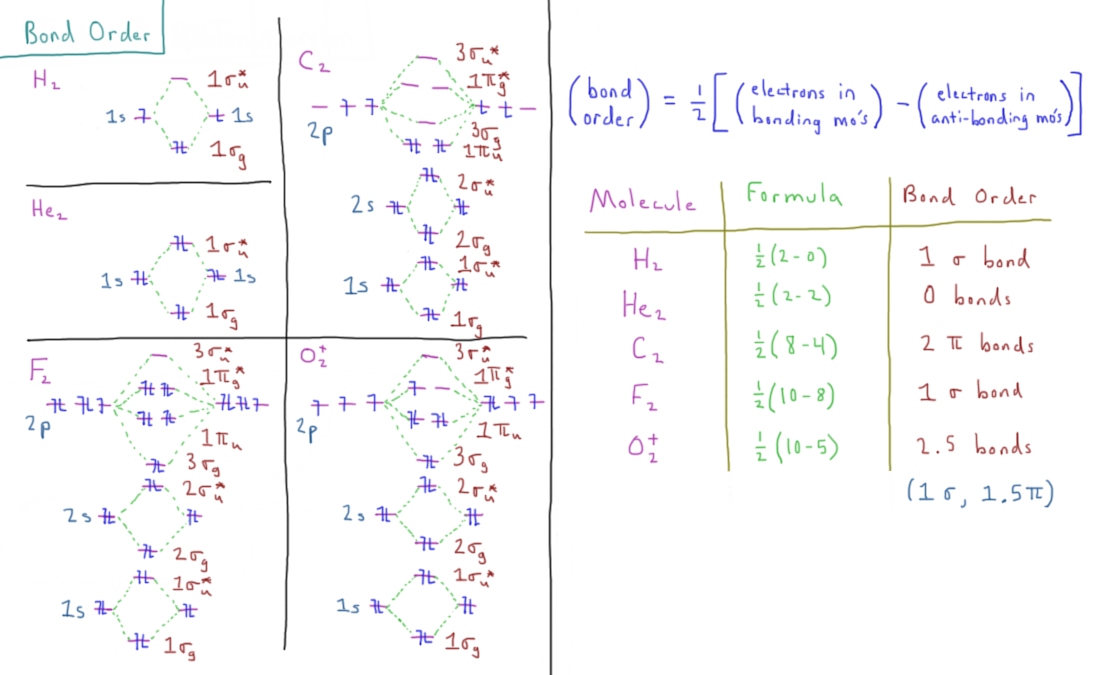 Bond Order
H₂
1σᵤ*
1s 1s
1σg
He₂
1σᵤ*
1s 1s
1σg
C₂
3σᵤ*
1πg*
2p
3σg
1πᵤ
2σᵤ*
2s
2σg
1σᵤ*
1s
1σg
F₂
3σᵤ*
1πg*
2p
1πᵤ
3σg
2σᵤ*
2s
2σg
1σᵤ*
1s
1σg
O₂⁺
3σᵤ*
1πg*
2p
1πᵤ
3σg
2σᵤ*
2s
2σg
1σᵤ*
1s
1σg
(bond order) = 1/2 [(electrons in bonding mo's) - (electrons in anti-bonding mo's)]
Molecule Formula Bond Order
H₂ 1/2(2-0) 1 σ bond
He₂ 1/2(2-2) 0 bonds
C₂ 1/2(8-4) 2 π bonds
F₂ 1/2(10-8) 1 σ bond
O₂⁺ 1/2(10-5) 2.5 bonds
(1σ, 1.5π)